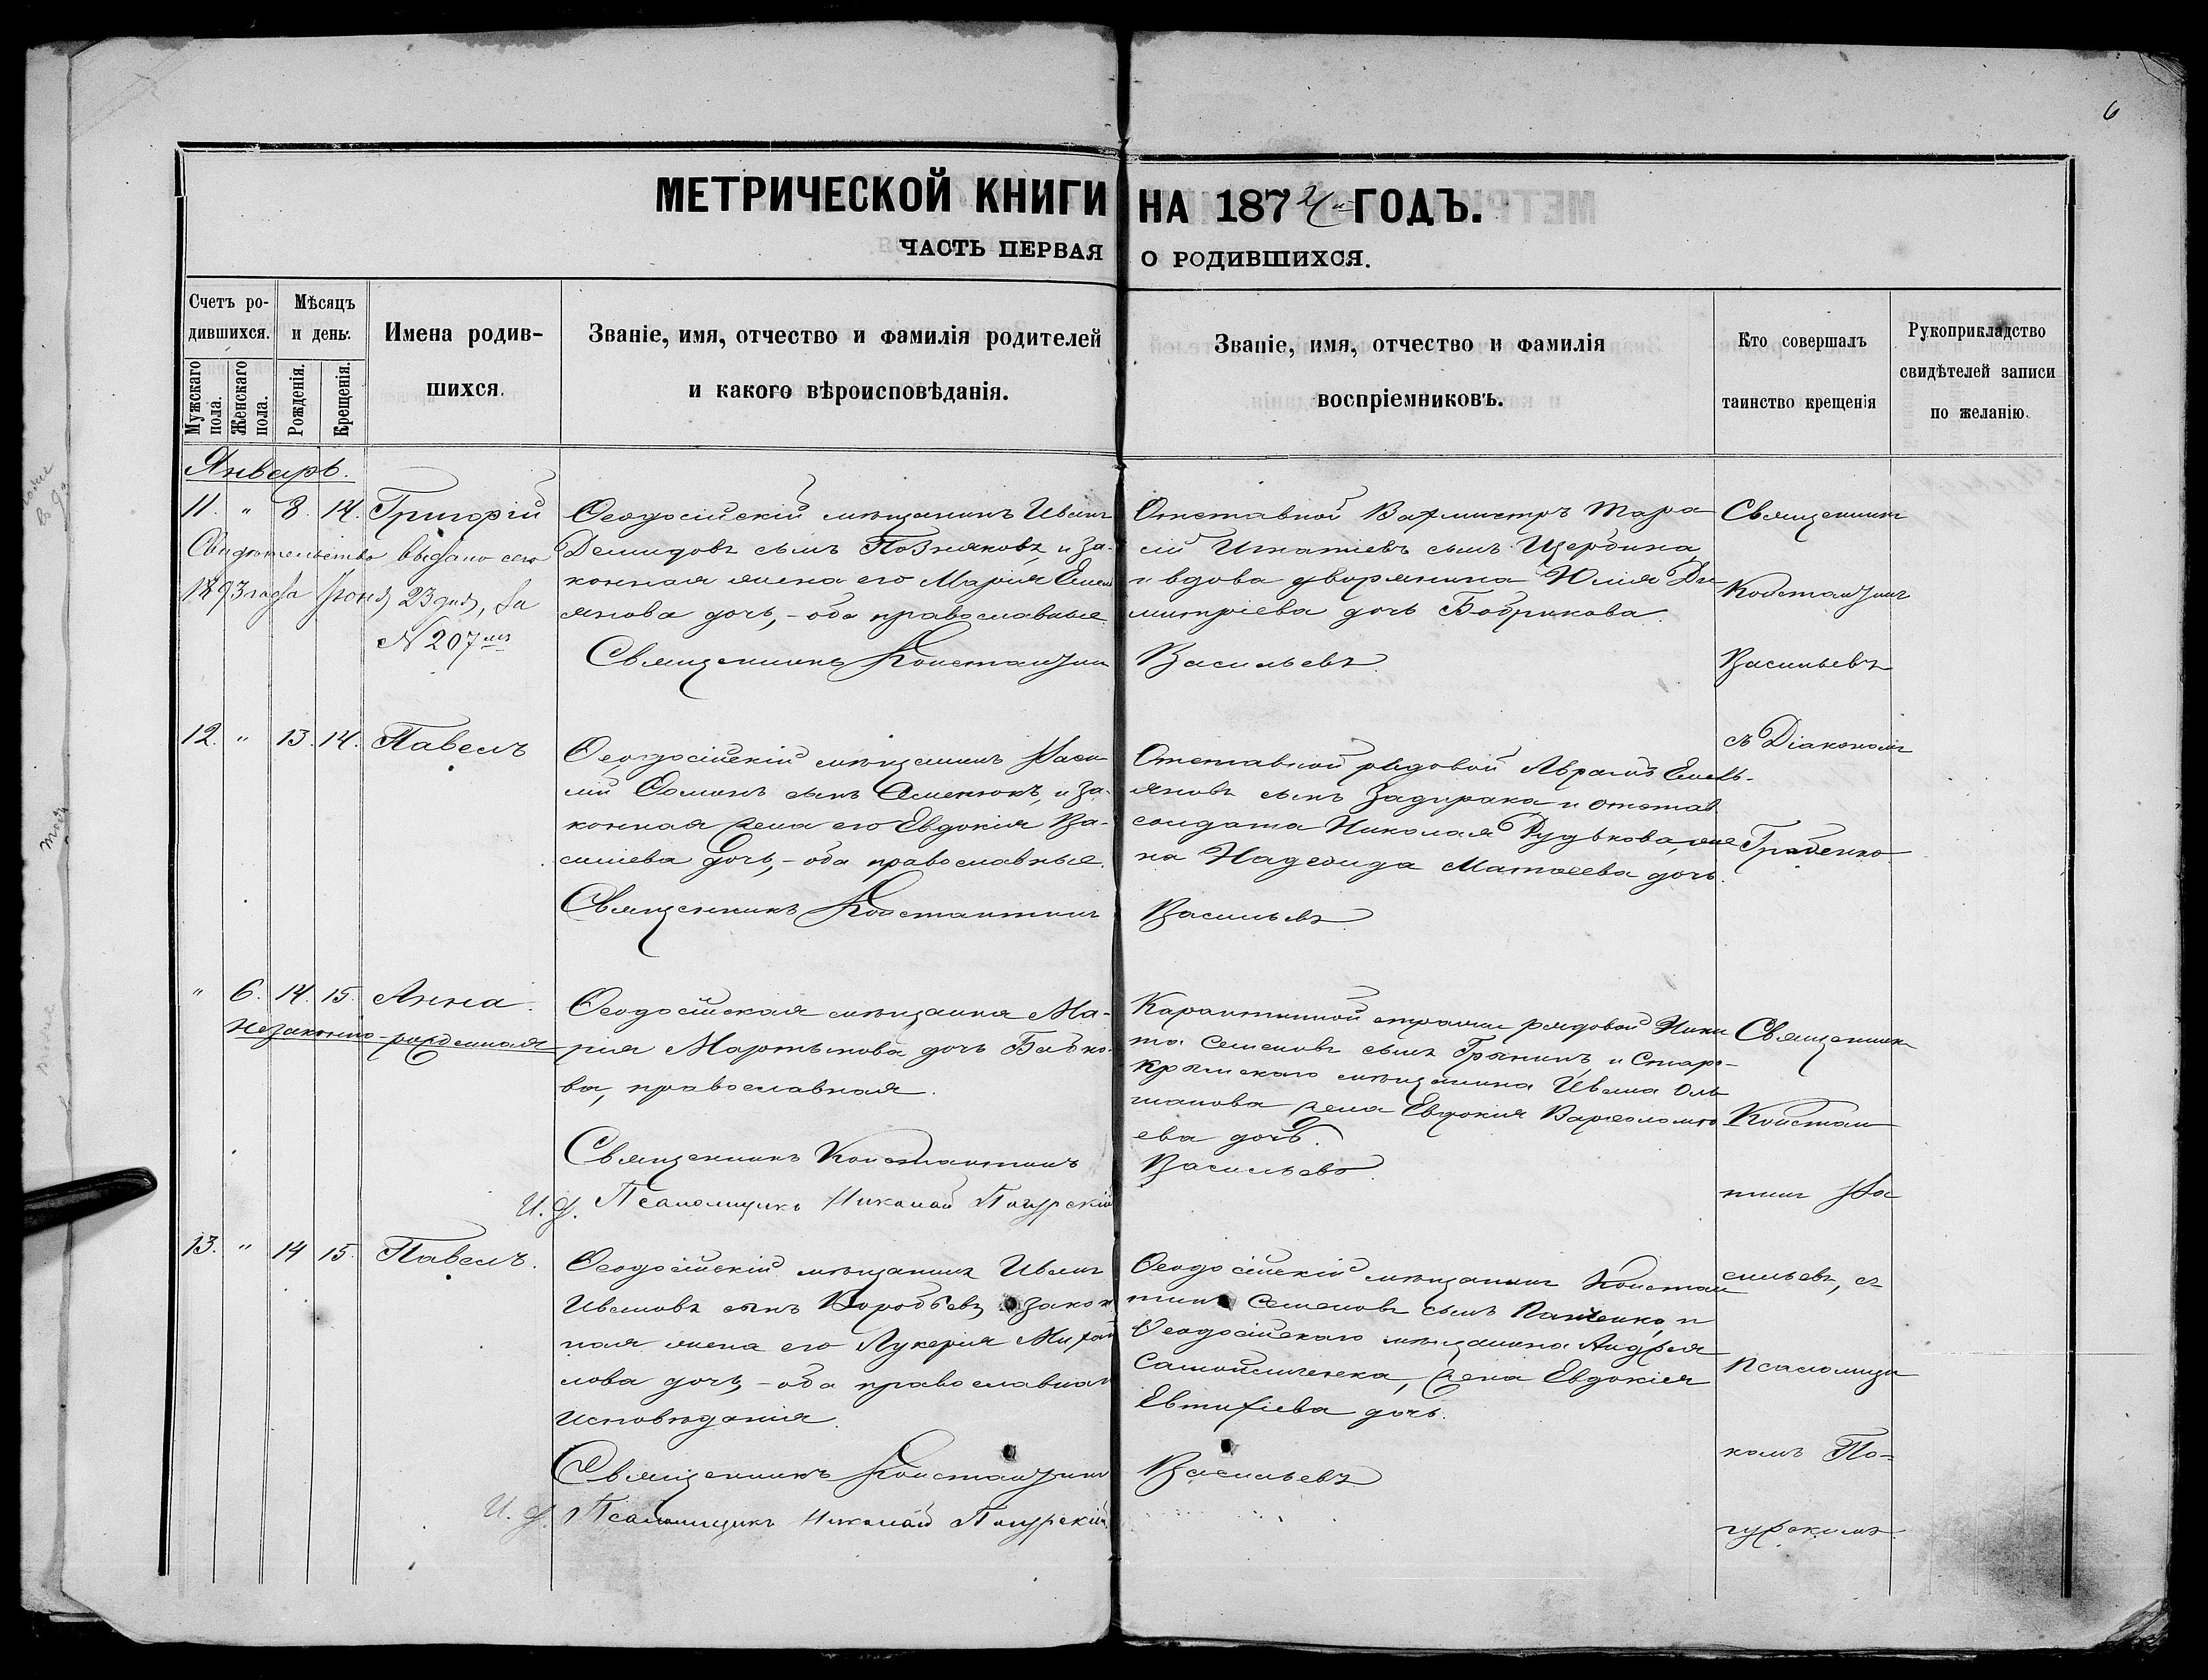 6
МЕТРИЧЕСКОЙ КНИГИ НА 1872/й ГОДЪ.
ЧАСТЬ ПЕРВАЯ О РОДИВШИХСЯ.
Счетъ ро-
дившихся.
Мужскаго пола.
Женскаго пола.
Мѣсяцъ
и день.
Рожденія.
Крещенія.
Имена родив-
шихся.
Званіе, имя, отчество и фамилія родителей
и какого вѣроисповѣданія.
Званіе, имя, отчество и фамилія
воспріемниковъ.
Кто совершалъ
таинство крещенія
Рукоприкладство
свидѣтелей записи
по желанію.
Январь.
11. " 8. 14. Григорій
Свидѣтельство выдано сего
1893 года Іюня 23 дня, за
№ 207мъ
Ѳеодосійскій мѣщанинъ Иванъ
Демидовъ сынъ Позняковъ, и за-
конная жена его Марія Емель
янова дочь, - оба православные.
Священникъ Константинъ
Отставной Вахмистръ Тара
сій Игнатіевъ сынъ Щербина,
и вдова дворянина Юлія Ди
митріева дочь Бобрикова.
Васильевъ.
Священникъ
Константинъ
Васильевъ
12. " 13. 14. Павелъ
Ѳеодосійскій мѣщанинъ Васи
лій Ѳоминъ сынъ Семенюкъ, и за-
конная жена его Евдокія Ва-
силіева дочь, - оба православные.
Священникъ Константинъ
Отставной рядовой Аврамъ Емель-
яновъ сынъ Задирака и отстав.
солдата Николая Рудькова, же
на Надежда Матѳеева дочь.
Васильевъ
съ Діакономъ
Грабенко
" 6. 14. 15. Анна.
Незаконно-рожденная
Ѳеодосійская мѣщанка Ма-
рія Мартынова дочь Бабко-
ва, православная.
Священникъ Константинъ
И. д. Псаломщика Николай Погурскій
Карантинной стражи рядовой Ники
та Семеновъ сынъ Грынинъ, и Старо-
крымскаго мѣщанина Ивана Оль
шанова жена Евдокія Варѳоломѣ
ева дочь.
Васильевъ.
Священник
Констан
тинъ Ва
13. " 14 15. Павелъ.
Ѳеодосійскій мѣщанинъ Иванъ
Ивановъ сынъ Воробьевъ, и закон
ная жена его Лукерія Михай
лова дочь, - оба православнаго
исповѣданія.
Священникъ Константинъ
И. д. Псаломщика Николай Погурскій
Ѳеодосійскій мѣщанинъ Констан
тинъ Семеновъ сынъ Панченко, и
Ѳеодосійскаго мѣщанина Андрея
Самойличенка, жена Евдокія
Евтихіева дочь.
Васильевъ
сильевъ, съ
Псаломщи
комъ По-
гурскимъ.